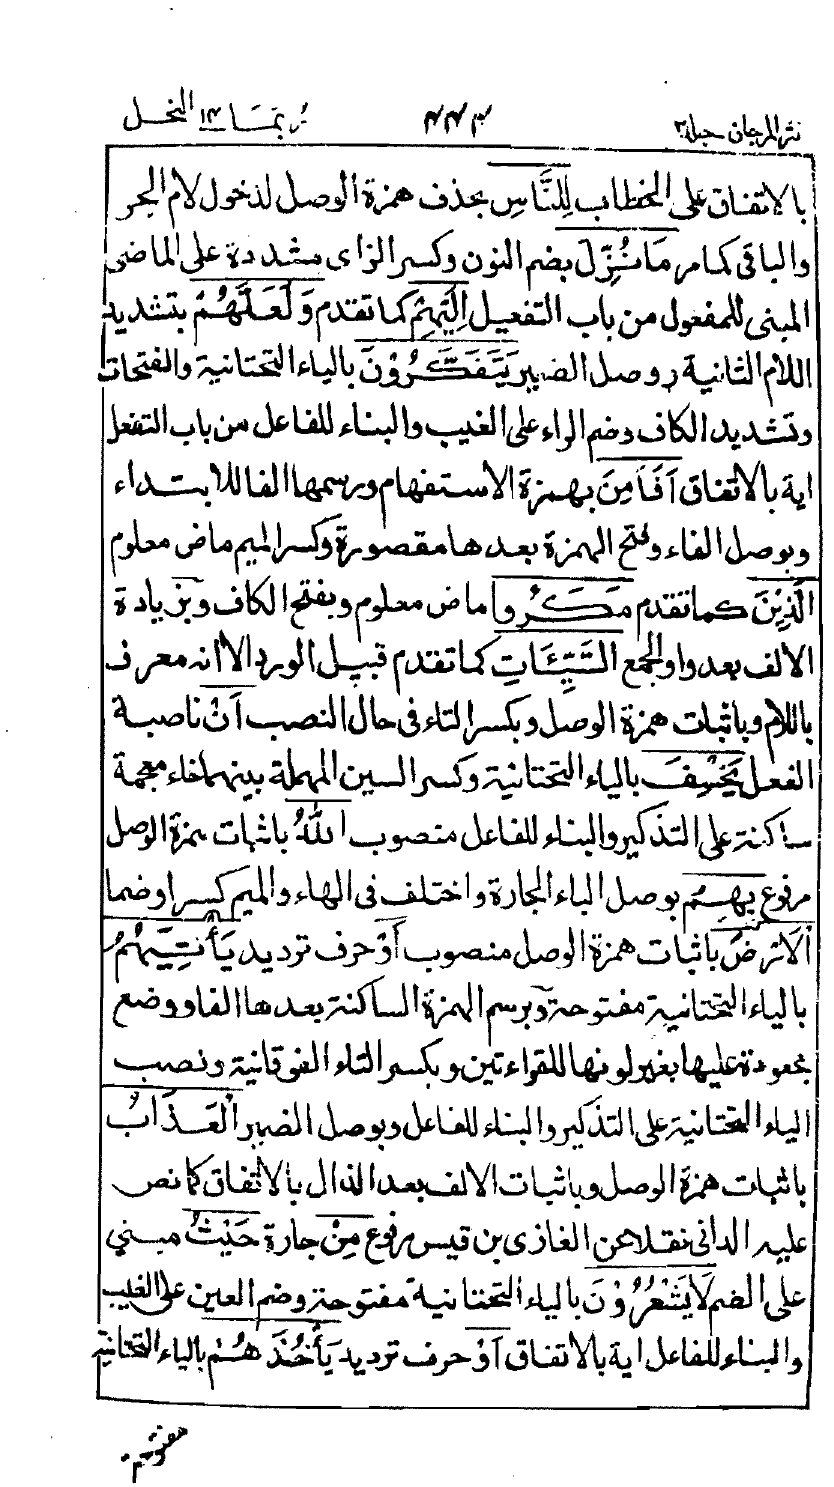 نثر المرجان جلد ۳ ۴۴۳ ربما ۱۴ النحل
بالاتفاق على الخطاب لِلنَّاسِ بحذف همزة الوصل لدخول لام الجر
والباقى كما مر مَا نُزِّلَ بضم النون وكسر الزاى مشددة على الماضى
المبنى للمفعول من باب التفعيل اِلَيْهِمْ كما تقدم وَلَعَلَّهُمْ بتشديد
اللام الثانية ووصل الضمير يَتَفَكَّرُوْنَ بالياء التحتانية والفتحات
وتشديد الكاف وضم الراء على الغيب والبناء للفاعل من باب التفعل
اية بالاتفاق اَفَاَمِنَ بهمزة الاستفهام ورسمها الفا للابتداء
وبوصل الفاء وفتح الهمزة بعدها مقصورة وكسر الميم ماض معلوم
الَّذِيْنَ كما تقدم مَكَرُوا ماض معلوم وبفتح الكاف وبزيادة
الالف بعد واو الجمع السَّيِّئَاتِ كما تقدم قبيل الورد الا انه معرف
باللام وباثبات همزة الوصل وبكسر التاء فى حال النصب اَنْ ناصبة
الفعل يَخْسِفَ بالياء التحتانية وكسر السين المهملة بينهما خاء معجمة
ساكنة على التذكير والبناء للفاعل منصوب اللهُ باثبات همزة الوصل
مرفوع بِهِمُ بوصل الباء الجارة واختلف فى الهاء والميم كسرا وضما
الْاَرْضَ باثبات همزة الوصل منصوب اَوْ حرف ترديد يَأْتِيَهُمُ
بالياء التحتانية مفتوحة وبرسم الهمزة الساكنة بعدها الفا ووضع
بجعودة عليها بغير لونها للقراءتين وبكسر التاء الفوقانية ونصب
الياء التحتانية على التذكير والبناء للفاعل وبوصل الضمير الْعَذَابُ
باثبات همزة الوصل وباثبات الالف بعد الذال بالاتفاق كما نص
عليه الدانى نقلا عن الغازى بن قيس مرفوع مِنْ جارة حَيْثُ مبنى
على الضم لَا يَشْعُرُوْنَ بالياء التحتانية مفتوحة وضم العين على الغيب
والبناء للفاعل اية بالاتفاق اَوْ حرف ترديد يَأْخُذَهُمْ بالياء التحتانية
مفتوحة